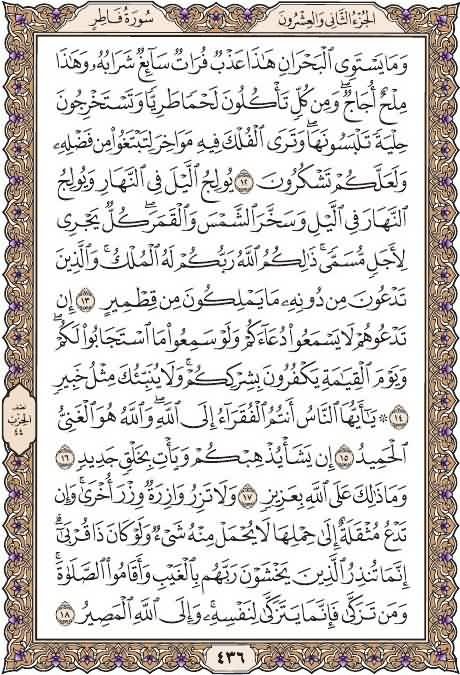 سُورَةُ فَاطِرٍ
الجُزْءُ الثَّانِي وَالعِشْرُونَ
وَمَا يَسْتَوِى ٱلْبَحْرَانِ هَٰذَا عَذْبٌ فُرَاتٌ سَآئِغٌ شَرَابُهُۥ وَهَٰذَا
مِلْحٌ أُجَاجٌ ۖ وَمِن كُلٍّ تَأْكُلُونَ لَحْمًا طَرِيًّا وَتَسْتَخْرِجُونَ
حِلْيَةً تَلْبَسُونَهَا ۖ وَتَرَى ٱلْفُلْكَ فِيهِ مَوَاخِرَ لِتَبْتَغُوا۟ مِن فَضْلِهِۦ
وَلَعَلَّكُمْ تَشْكُرُونَ ١٢ يُولِجُ ٱلَّيْلَ فِى ٱلنَّهَارِ وَيُولِجُ
ٱلنَّهَارَ فِى ٱلَّيْلِ وَسَخَّرَ ٱلشَّمْسَ وَٱلْقَمَرَ ۖ كُلٌّ يَجْرِى
لِأَجَلٍ مُّسَمًّى ۚ ذَٰلِكُمُ ٱللَّهُ رَبُّكُمْ لَهُ ٱلْمُلْكُ ۚ وَٱلَّذِينَ
تَدْعُونَ مِن دُونِهِۦ مَا يَمْلِكُونَ مِن قِطْمِيرٍ ١٣ إِن
تَدْعُوهُمْ لَا يَسْمَعُوا۟ دُعَآءَكُمْ وَلَوْ سَمِعُوا۟ مَا ٱسْتَجَابُوا۟ لَكُمْ ۖ
وَيَوْمَ ٱلْقِيَٰمَةِ يَكْفُرُونَ بِشِرْكِكُمْ ۚ وَلَا يُنَبِّئُكَ مِثْلُ خَبِيرٍ
١٤ ۞ يَٰٓأَيُّهَا ٱلنَّاسُ أَنتُمُ ٱلْفُقَرَآءُ إِلَى ٱللَّهِ ۖ وَٱللَّهُ هُوَ ٱلْغَنِىُّ
ٱلْحَمِيدُ ١٥ إِن يَشَأْ يُذْهِبْكُمْ وَيَأْتِ بِخَلْقٍ جَدِيدٍ ١٦
وَمَا ذَٰلِكَ عَلَى ٱللَّهِ بِعَزِيزٍ ١٧ وَلَا تَزِرُ وَازِرَةٌ وِزْرَ أُخْرَىٰ ۚ وَإِن
تَدْعُ مُثْقَلَةٌ إِلَىٰ حِمْلِهَا لَا يُحْمَلْ مِنْهُ شَىْءٌ وَلَوْ كَانَ ذَا قُرْبَىٰٓ ۗ
إِنَّمَا تُنذِرُ ٱلَّذِينَ يَخْشَوْنَ رَبَّهُم بِٱلْغَيْبِ وَأَقَامُوا۟ ٱلصَّلَوٰةَ ۚ
وَمَن تَزَكَّىٰ فَإِنَّمَا يَتَزَكَّىٰ لِنَفْسِهِۦ ۚ وَإِلَى ٱللَّهِ ٱلْمَصِيرُ ١٨
نصف
الحزب
٤٤
٤٣٦